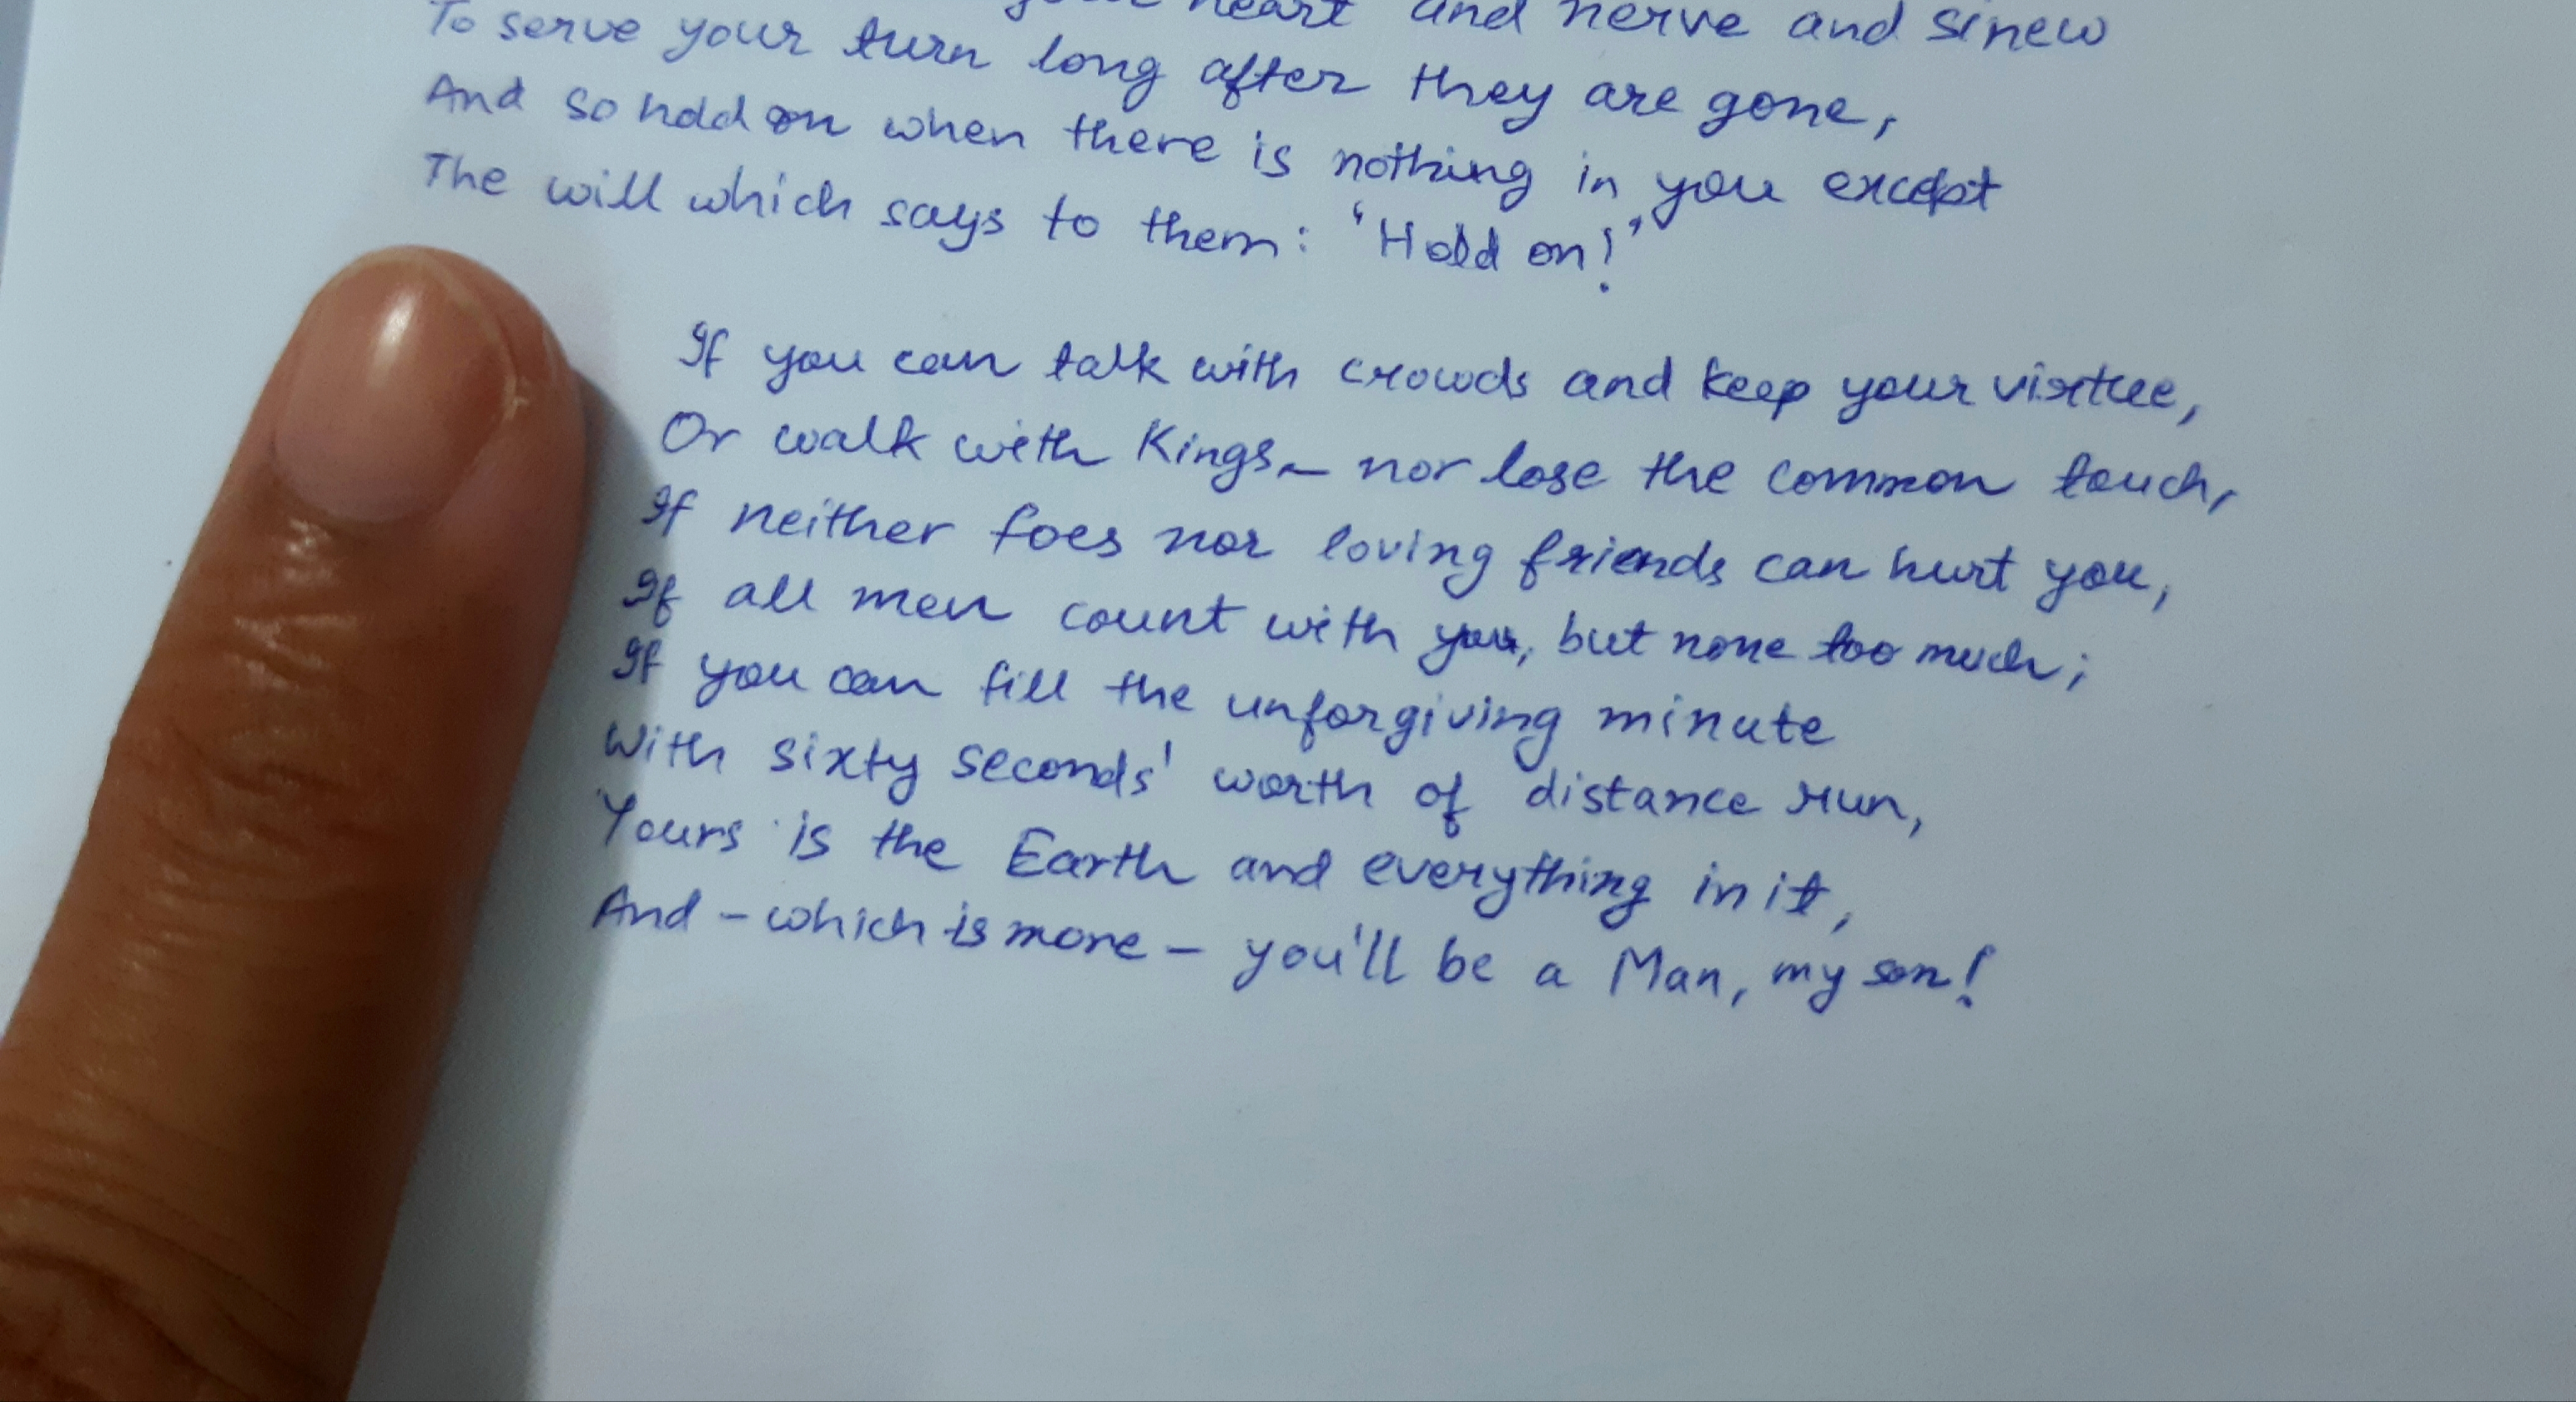 your heart and nerve and sinew
To serve your turn long after they are gone,
And so hold on when there is nothing in you except
The will which says to them: 'Hold on!'
If you can talk with crowds and keep your virtue,
Or walk with Kings - nor lose the common touch,
If neither foes nor loving friends can hurt you,
If all men count with you, but none too much;
If you can fill the unforgiving minute
With sixty seconds' worth of distance run,
Yours is the Earth and everything in it,
And - which is more - you'll be a Man, my son!